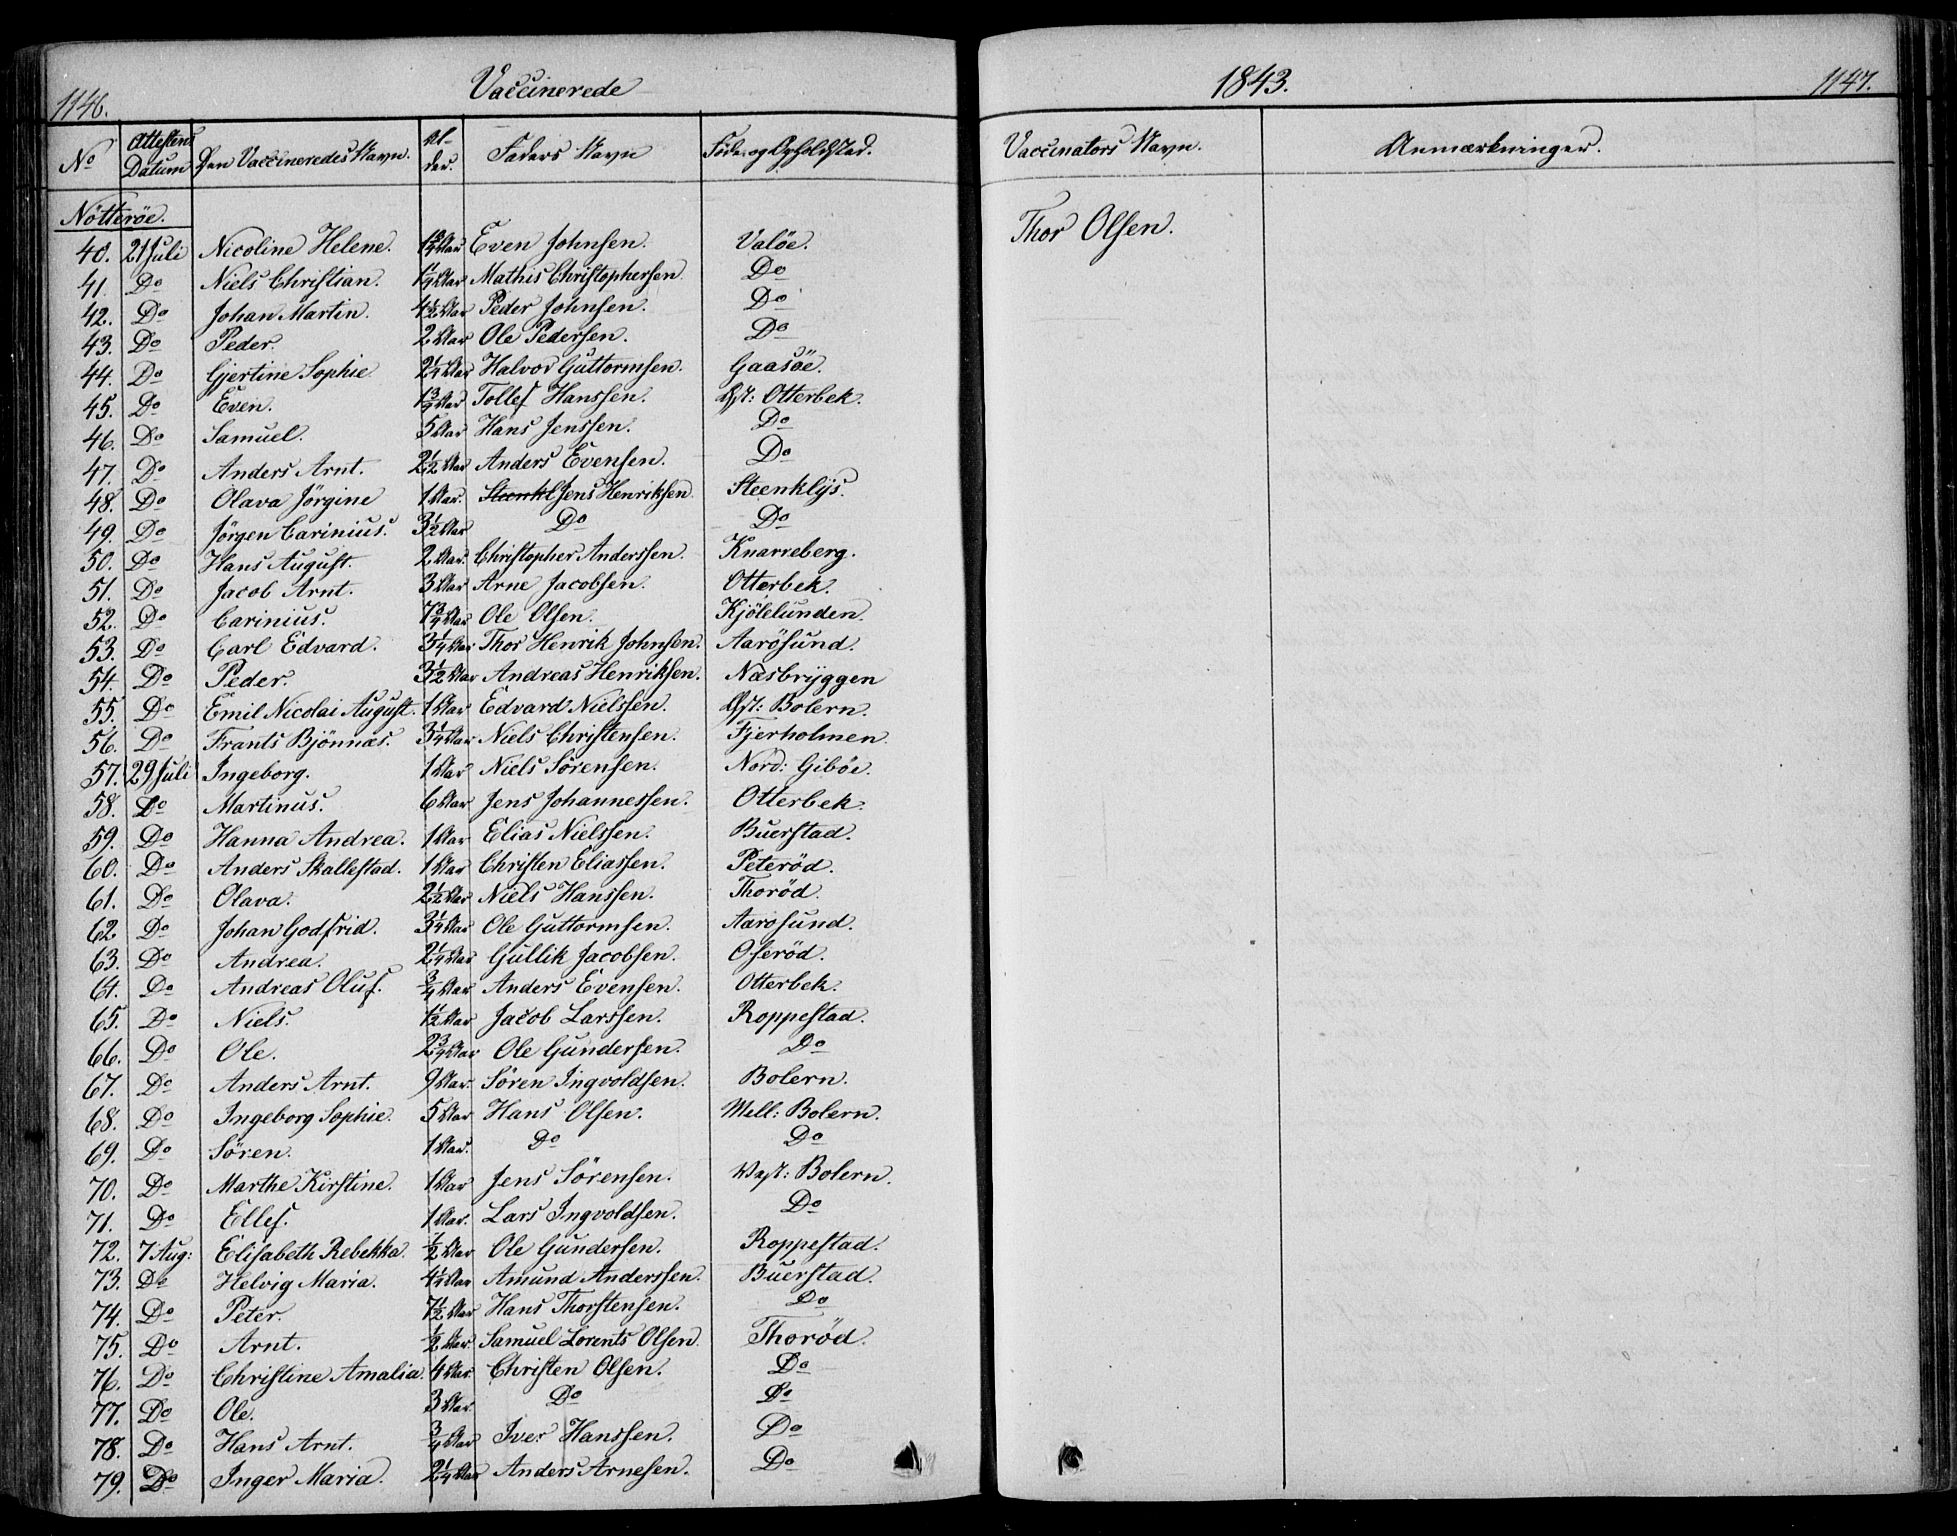 1146.
Vaccinerede
1843.
1147.
No
Attestens Datum
Den Vaccineredes Navn.
Al-der.
Faders Navn
Föde- og Opholdsted.
Vaccinators Navn.
Anmærkninger.
Nötteröe.
Thor Olsen.
40. 21 Juli Nicoline Helene. 1 3/4 Aar Even Johnsen. Valöe.
41. Do Niels Christian. 1 1/4 Aar Mathis Christophersen. Do
42. Do Johan Martin. 4 1/2 Aar Peder Johnsen. Do
43. Do Peder 2 Aar Ole Pedersen. Do
44. Do Gjertine Sophie 2 1/4 Aar Halvor Guttormsen. Gaasöe.
45. Do Even. 1 3/4 Aar Tollef Hanssen. Øst: Otterbek.
46. Do Samuel. 5 Aar Hans Jenssen. Do
47. Do Anders Arnt. 2 1/2 Aar Anders Evensen. Do
48. Do Olava Jörgine 1 Aar. Steenkl Jens Henriksen Steenklÿs.
49. Do Jörgen Carinius. 3 1/2 Aar Do Do
50. Do Hans August. 2 Aar. Christopher Anderssen. Knarreberg.
51. Do Jacob Arnt. 3 Aar Arne Jacobsen. Otterbek.
52. Do Carinius. 7 3/4 Aar Ole Olsen. Kjölelunden.
53. Do Carl Edvard. 3 1/4 Aar Thor Henrik Johnsen. Aarösund.
54. Do Peder. 3 1/2 Aar Andreas Henriksen. Næsbrÿggen
55. Do Emil Nicolai August. 1 Aar Edvard Nielssen. Øst: Bolern.
56. Do Frants Bjönnæs. 3 1/4 Aar Niels Christensen. Fjerholmen.
57. 29 Juli Ingeborg. 1 Aar Niels Sörensen. Nord: Giböe.
58. Do Martinus. 6 Aar Jens Johannessen. Otterbek.
59. Do Hanna Andrea. 1 Aar Elias Nielssen. Buerstad.
60. Do Anders Skallestad. 1 Aar Christen Eliassen. Peteröd.
61. Do Olava. 2 1/2 Aar Niels Hanssen. Thoröd.
62. Do Johan Godfrid. 3 1/4 Aar Ole Guttormsen. Aarosund.
63. Do Andrea. 2 1/4 Aar Gullik Jacobsen. Oseröd.
64. Do Andreas Oluf. 3/4 Aar Anders Evensen. Otterbek.
65. Do Niels. 1/2 Aar Jacob Larssen. Roppestad.
66. Do Ole. 2 3/4 Aar Ole Gundersen. Do
67. Do Anders Arnt. 9 Aar. Sören Ingvoldsen. Bolern.
68. Do Ingeborg Sophie. 5 Aar Hans Olsen. Mell: Bolern.
69. Do Sören. 1 Aar. Do Do
70. Do Marthe Kirstine. 1 Aar Jens Sörensen. Vest: Bolern.
71. Do Ellef. 1 Aar. Lars Ingvoldsen. Do
72. 7 Aug: Elisabeth Rebekka. 1/2 Aar Ole Gundersen. Roppestad.
73. Do Helvig Maria. 4 1/4 Aar Amund Anderssen. Buerstad.
74. Do Peter. 7 1/2 Aar Hans Thorstensen. Do
75. Do Arnt. 1/2 Aar. Samuel Lorents Olsen. Thoröd.
76. Do Christine Amalia. 4 Aar. Christen Olsen. Do
77. Do Ole. 3 Aar. Do Do
78. Do Hans Arnt. 3/4 Aar Iver Hanssen. Do
79. Do Inger Maria. 2 1/4 Aar Anders Arnesen. Do